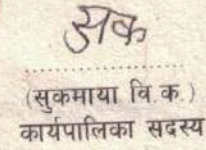 .....................
(सुकमाया वि.क.)
कार्यपालिका सदस्य